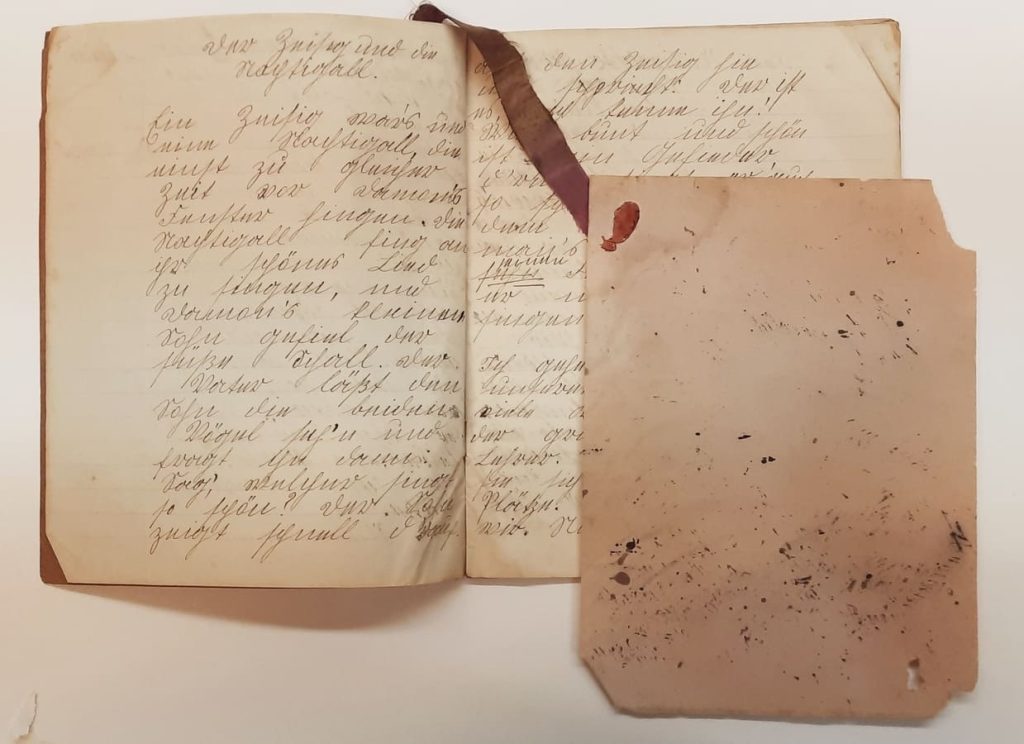 Der Zeisig und die
Nachtigall.
Ein Zeisig war's und
eine Nachtigall, die
einst zu gleicher
Zeit vor Damon's
Fenster singen. Die
Nachtigall fing an
ihr schönes Lied
zu singen, und
Damon's kleinem
Sohn gefiel der
süße Schall. Der
Vater läßt den
Sohn die beiden
Vögel seh'n und
fragt ihn dann:
Sag', welcher singt
so schön? Der Sohn
zeigt schnell
den Zeisig hin
spricht: Der ist
kenne ihn!
bunt und schön
ist Gefieder
so
dem
man's
er
singen
Ich gehe
unsere
viele
der
Lehrer.
Plätze.
wir.